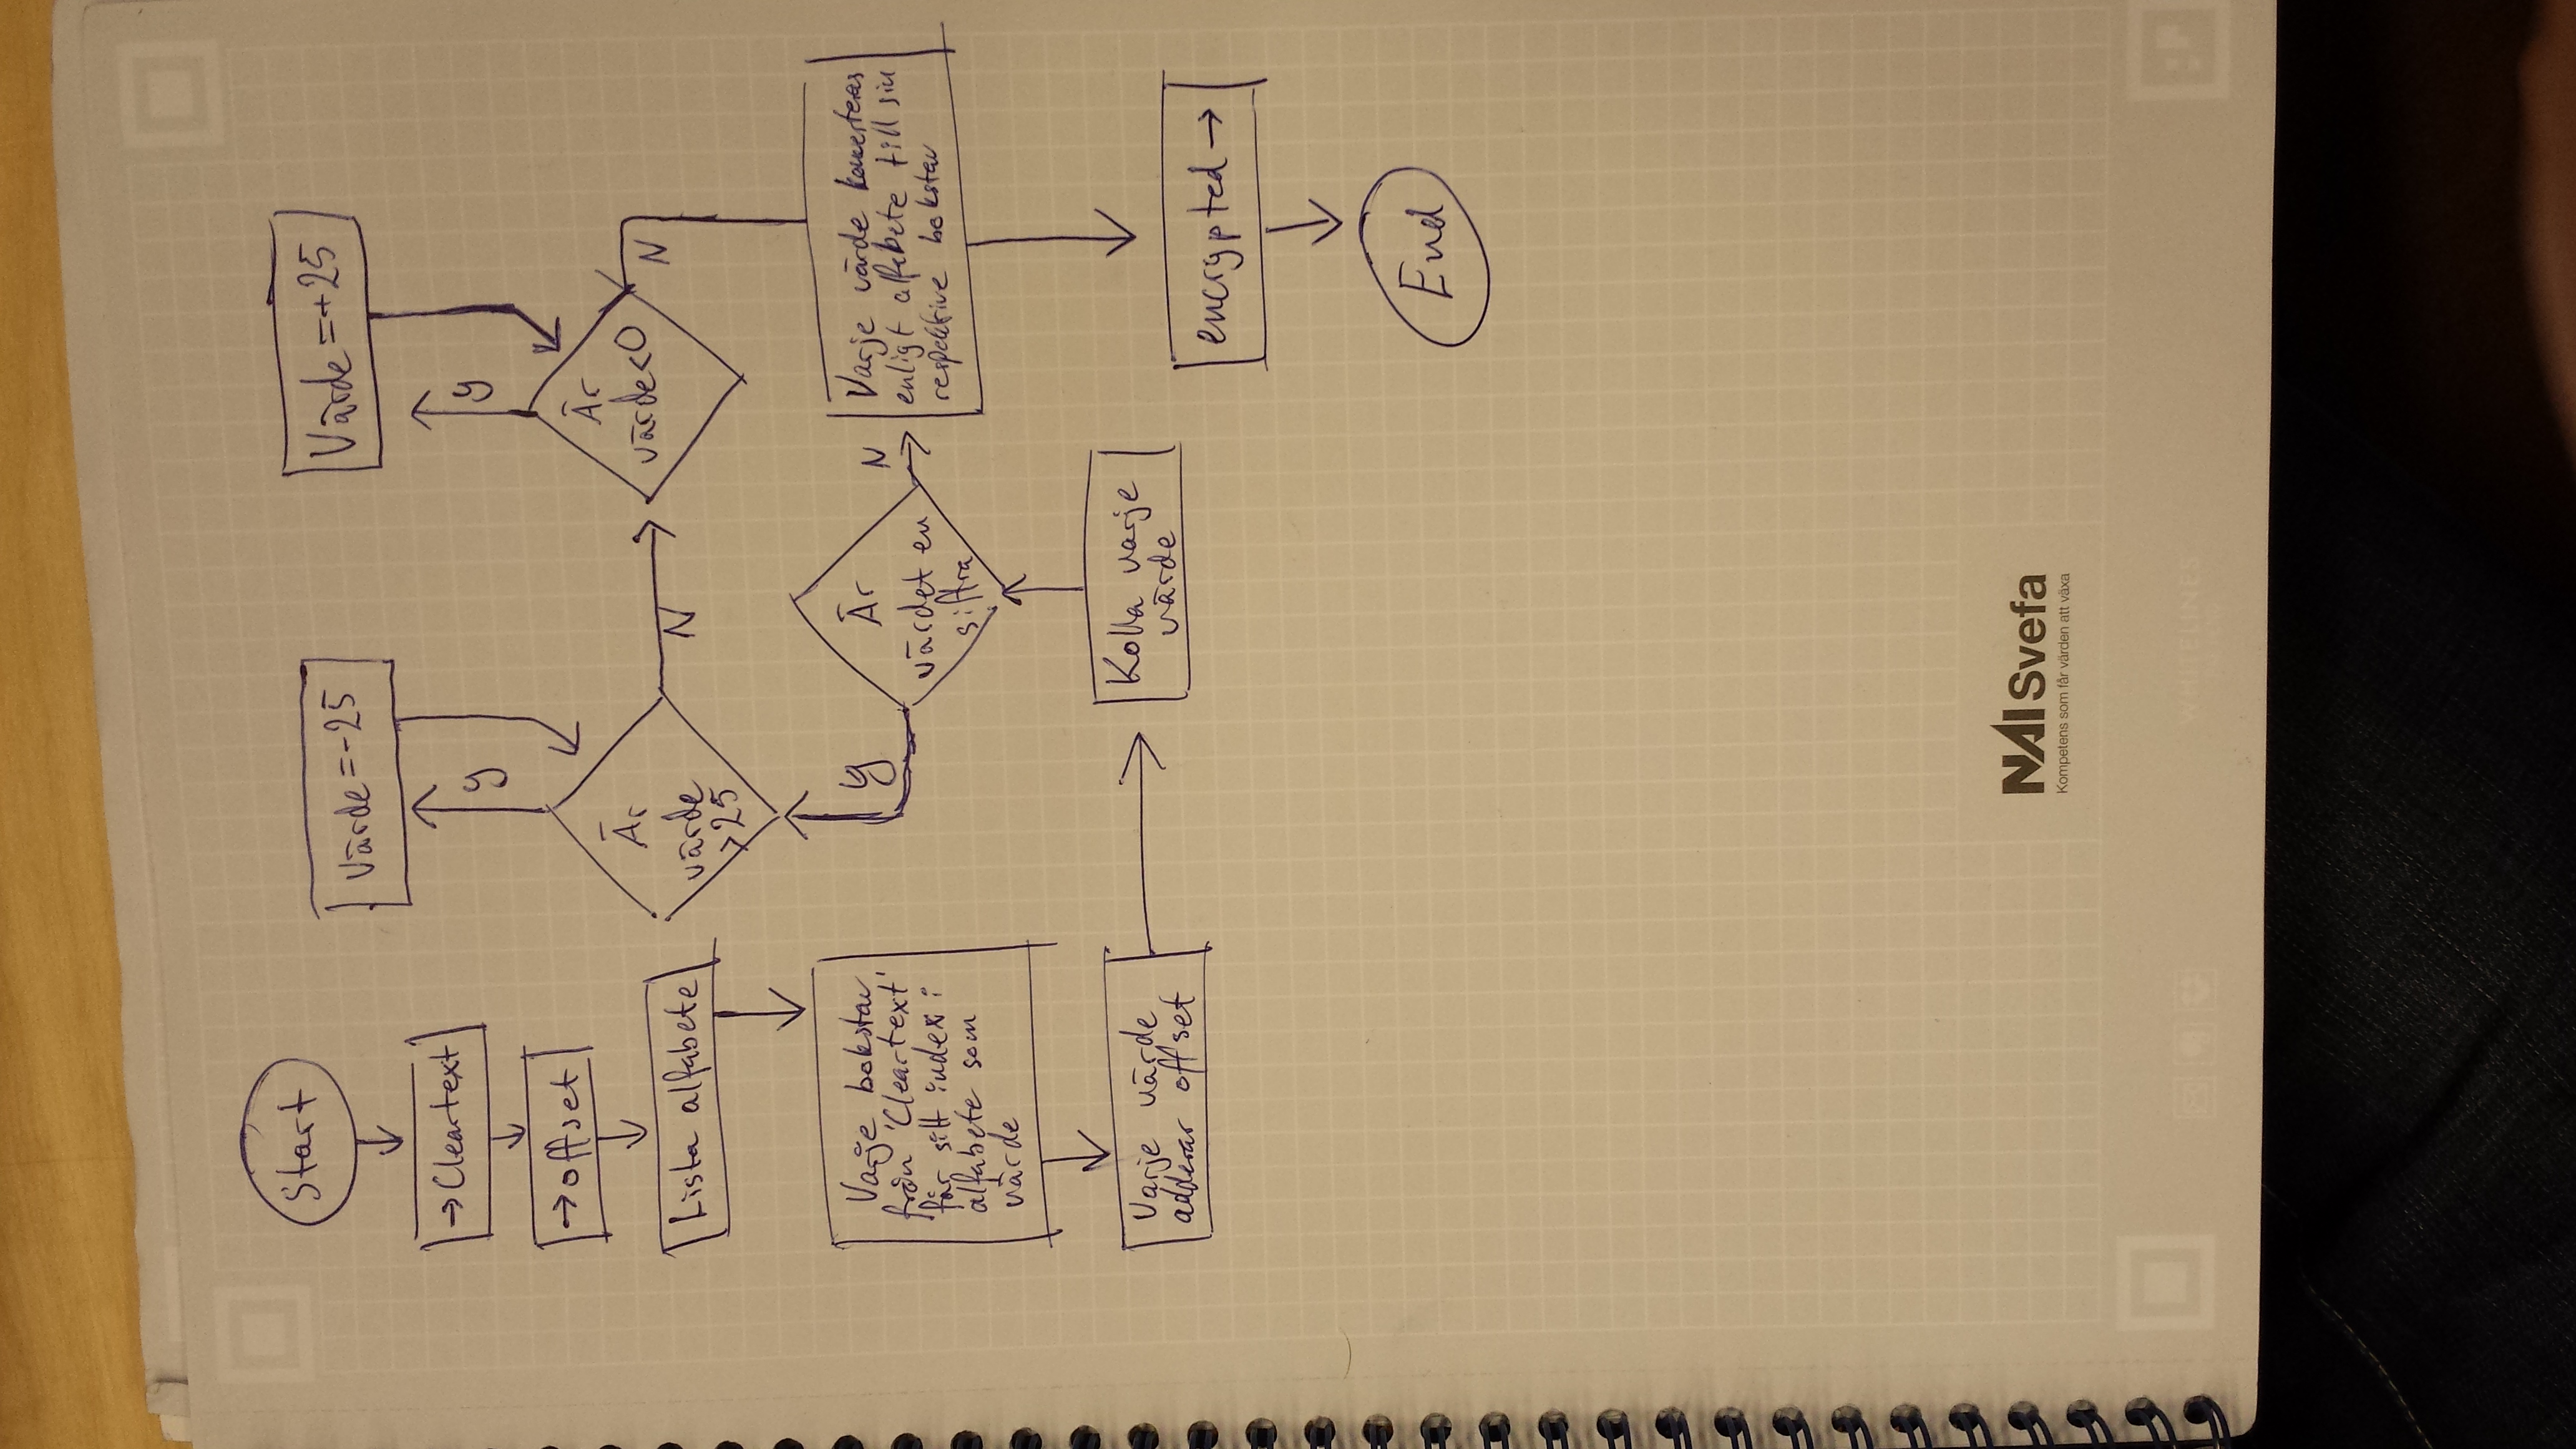 Start
→ Cleartext
→ offset
Lista alfabete
Varje bokstav
från 'Cleartext'
får sitt index i
alfabete som
värde
Varje värde
adderar offset
Kolla varje
värde
Är
värdet en
siffra
y
N
Är
värde
>25
y
Värde =-25
N
Är
värde<0
y
Värde =+25
N
Varje värde konverteras
enligt alfabete till sin
respektive bokstav
encrypted →
End
NAI Svefa
Kompetens som får värden att växa
WHITELINES